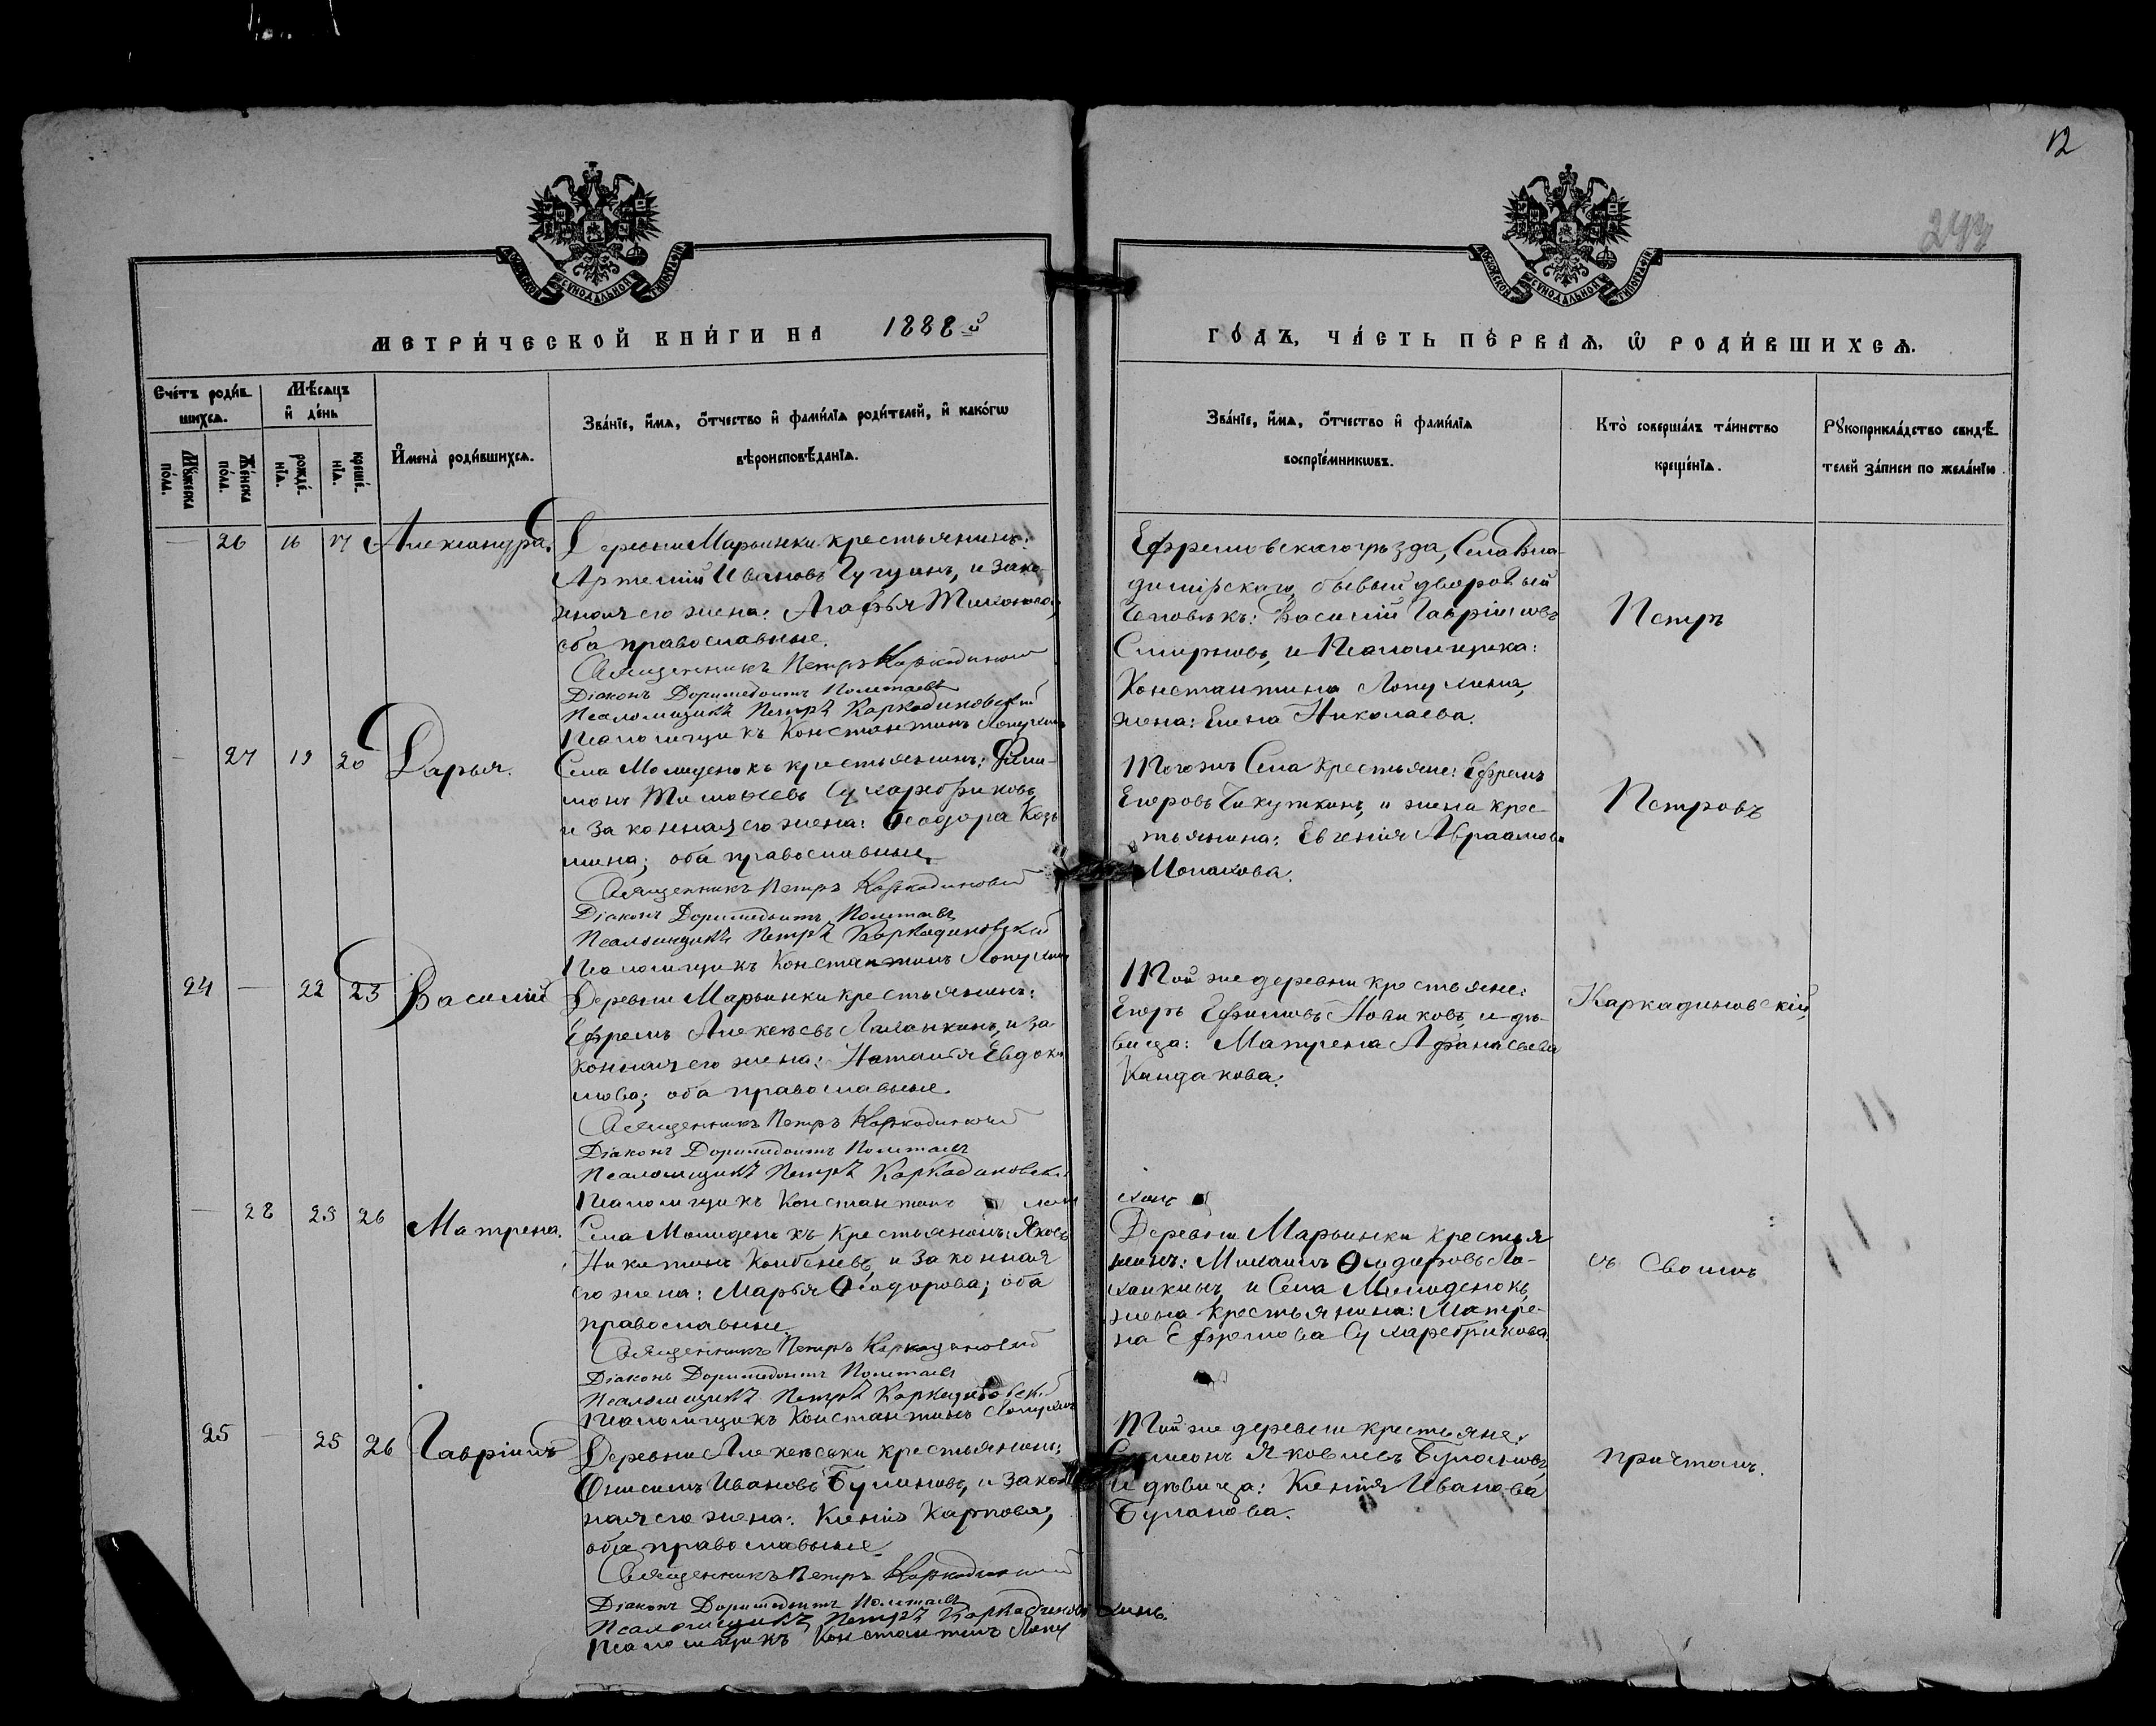 12
293
МОСКОВСКОЙ СѴНОДАЛЬНОЙ ТИПОГРАФІИ
МОСКОВСКОЙ СѴНОДАЛЬНОЙ ТИПОГРАФІИ
МЕТРИ́ЧЕСКОЙ КНИ́ГИ НА 1888й
ГО́ДЪ, ЧА́СТЬ ПЕ́РВАѦ, Ѡ РОДИ́ВШИХСѦ.
Сче́тъ роди́в-
шихсѧ.
Мѣ́сѧцъ
и҆ де́нь
Мꙋ́жеска
по́ла.
Же́нска
по́ла.
рожде́-
нїѧ.
креще́-
нїѧ.
И҆мена̀ роди́вшихсѧ.
Зва́нїе, и҆́мѧ, ѻ҆́тчество и҆ фами́лїѧ роди́телей, и҆ како́гѡ
вѣроисповѣ́данїѧ.
Зва́нїе, и҆́мѧ, ѻ҆́тчество и҆ фами́лїѧ
воспрїе́мникѡвъ.
Кто̀ соверша́лъ та́инство
креще́нїѧ.
Рꙋкоприкла́дство свидѣ́-
телей за́писи по жела́нїю
— 26 16 17 Александра.
Деревни Марьинки крестьянинъ:
Артемій Ивановъ и зако-
нная его жена: Агафья Тихонова,
оба православные.
Священникъ Петръ Каркадиновскій
Діаконъ Доримедонтъ Полетаевъ
Псаломщикъ Петръ Каркадиновскій
Псаломщикъ Константинъ Лопухинъ
Ефремовскаго уѣзда, Села Вла-
димірскаго, бывый дворовый
человѣкъ: Василій Гавріиловъ
Смирновъ, и Псаломщика:
Константина Лопухина,
жена: Елена Николаева.
Петръ
— 27 19 20 Дарья.
Села Молиденокъ крестьянинъ: Фили-
монъ Тимоѳеевъ Сухаребриковъ,
и законная его жена: Ѳеодора Козь-
мина; оба православные.
Священникъ Петръ Каркадиновскій
Діаконъ Доримедонтъ Полетаевъ
Псаломщикъ Петръ Каркадиновскій
Псаломщикъ Константинъ Лопухинъ
Тогоже Села крестьяне: Ефремъ
Егоровъ Чикуткинъ, и жена крес-
тьянина: Евгенія Авраамова
Петровъ
24 — 22 23 Василій
Деревни Марьинки крестьянинъ:
Ефремъ Алексѣевъ Лаханкинъ, и за-
конная его жена: Наталія Евдоки-
мова; оба православные.
Священникъ Петръ Каркадиновскій
Діаконъ Доримедонтъ Полетаевъ
Псаломщикъ Петръ Каркадиновскій
Псаломщикъ Константинъ Лопу
хинъ
Той же деревни крестьяне:
Егоръ Ефимовъ Новиковъ, и дѣ-
вица: Матрена Афанасьева
Кандакова.
Каркадиновскій,
— 28 25 26 Матрена.
Села Молиденокъ крестьянинъ: Яковъ
Никитинъ и законная
его жена: Марья Ѳеодорова; оба
православные.
Священникъ Петръ Каркадиновскій
Діаконъ Доримедонтъ Полетаевъ
Псаломщикъ Петръ Каркадиновскій
Псаломщикъ Константинъ Лопухинъ
Деревни Марьинки крестья-
нинъ: Михаилъ Ѳеодоровъ Ла-
ханкинъ, и Села Молиденокъ,
жена крестьянина: Матре-
на Ефремова Сухаребрикова.
съ Своимъ
25 — 25 26 Гавріилъ
Деревни Алексѣевки крестьянинъ:
Онисимъ Ивановъ Булановъ, и закон-
ная его жена: Ксенія Карпова,
оба православные.
Священникъ Петръ Каркадиновскій
Діаконъ Доримедонтъ Полетаевъ
Псаломщикъ Петръ Каркадиновскій
Псаломщикъ Константинъ Лопу
хинъ.
Той же деревни крестьяне:
Симеонъ Яковлевъ Булановъ,
и дѣвица: Ксенія Иванова
Буланова.
причтомъ.